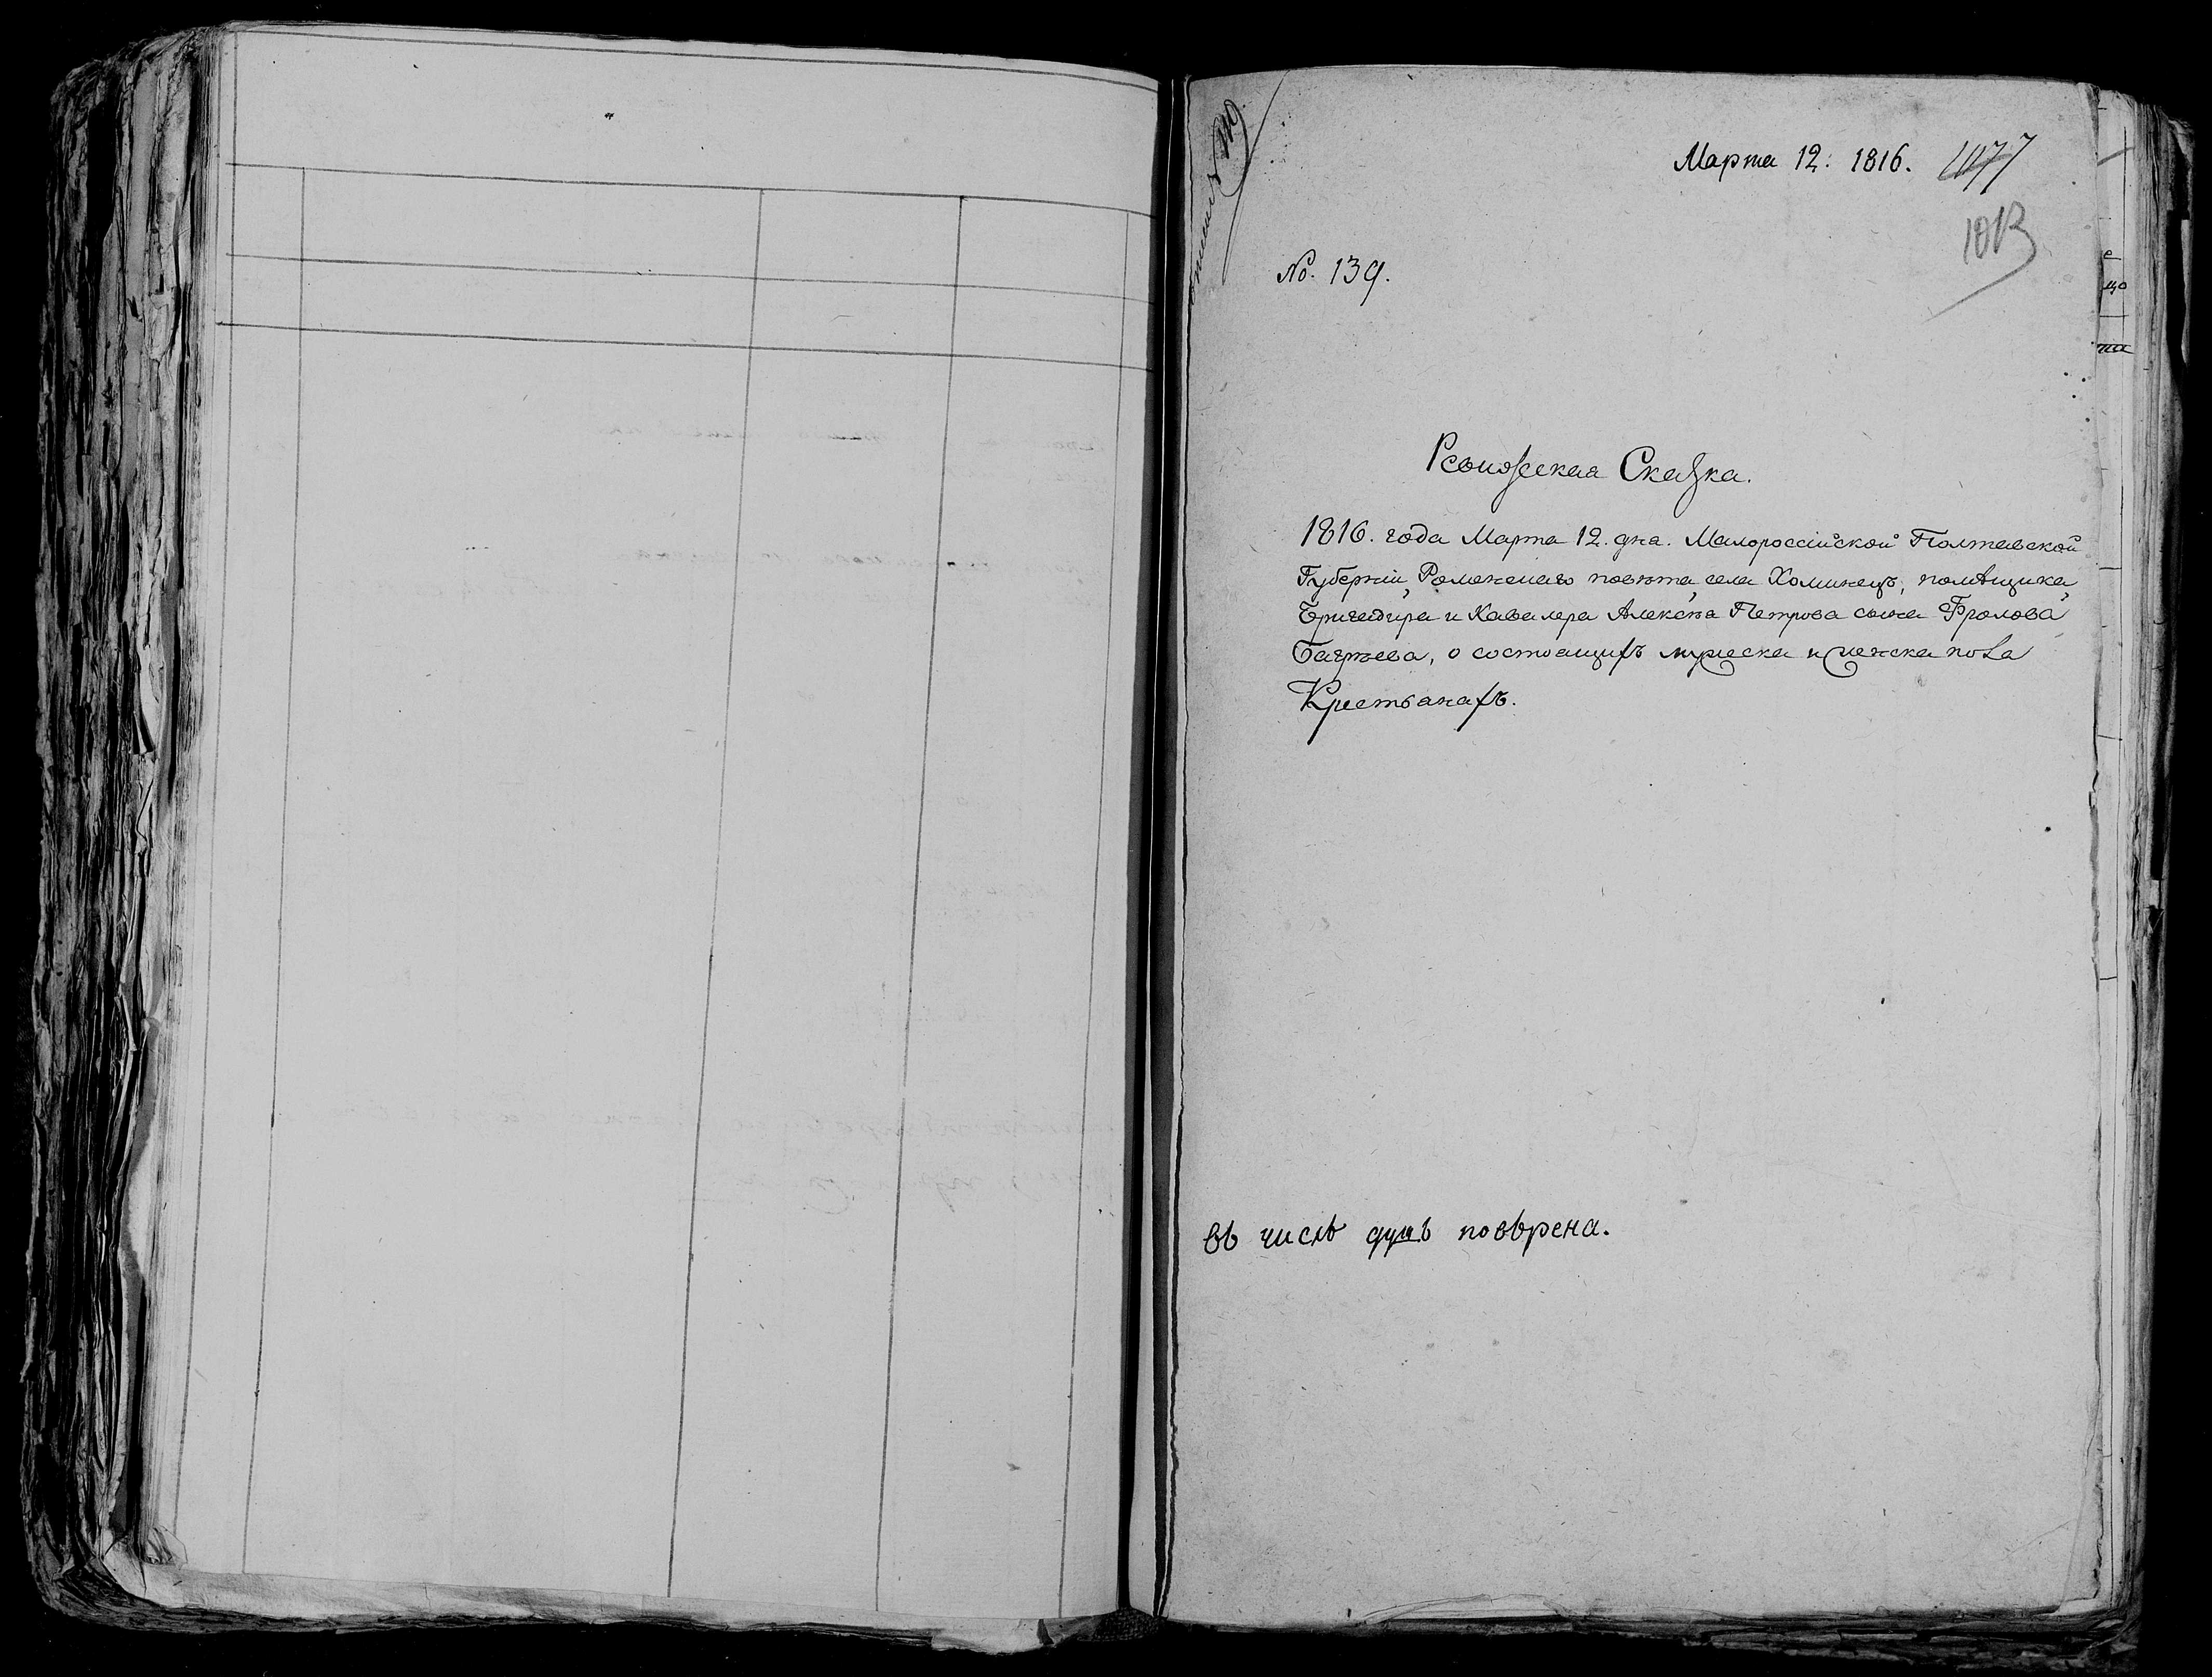 Марта 12. 1816. 1177
1013
No. 139.
Ревизская Сказка.
1816. года Марта 12. дня. Малороссійской Полтавской
Губерніи, Роменскаго повѣта, села Хоминецъ, помѣщика,
Бригадира и Кавалера Алексѣя Петрова сына Фролова
Багрѣева, о состоящихъ мужеска и женска пола
Крестьянахъ.
въ числѣ душъ повѣрена.